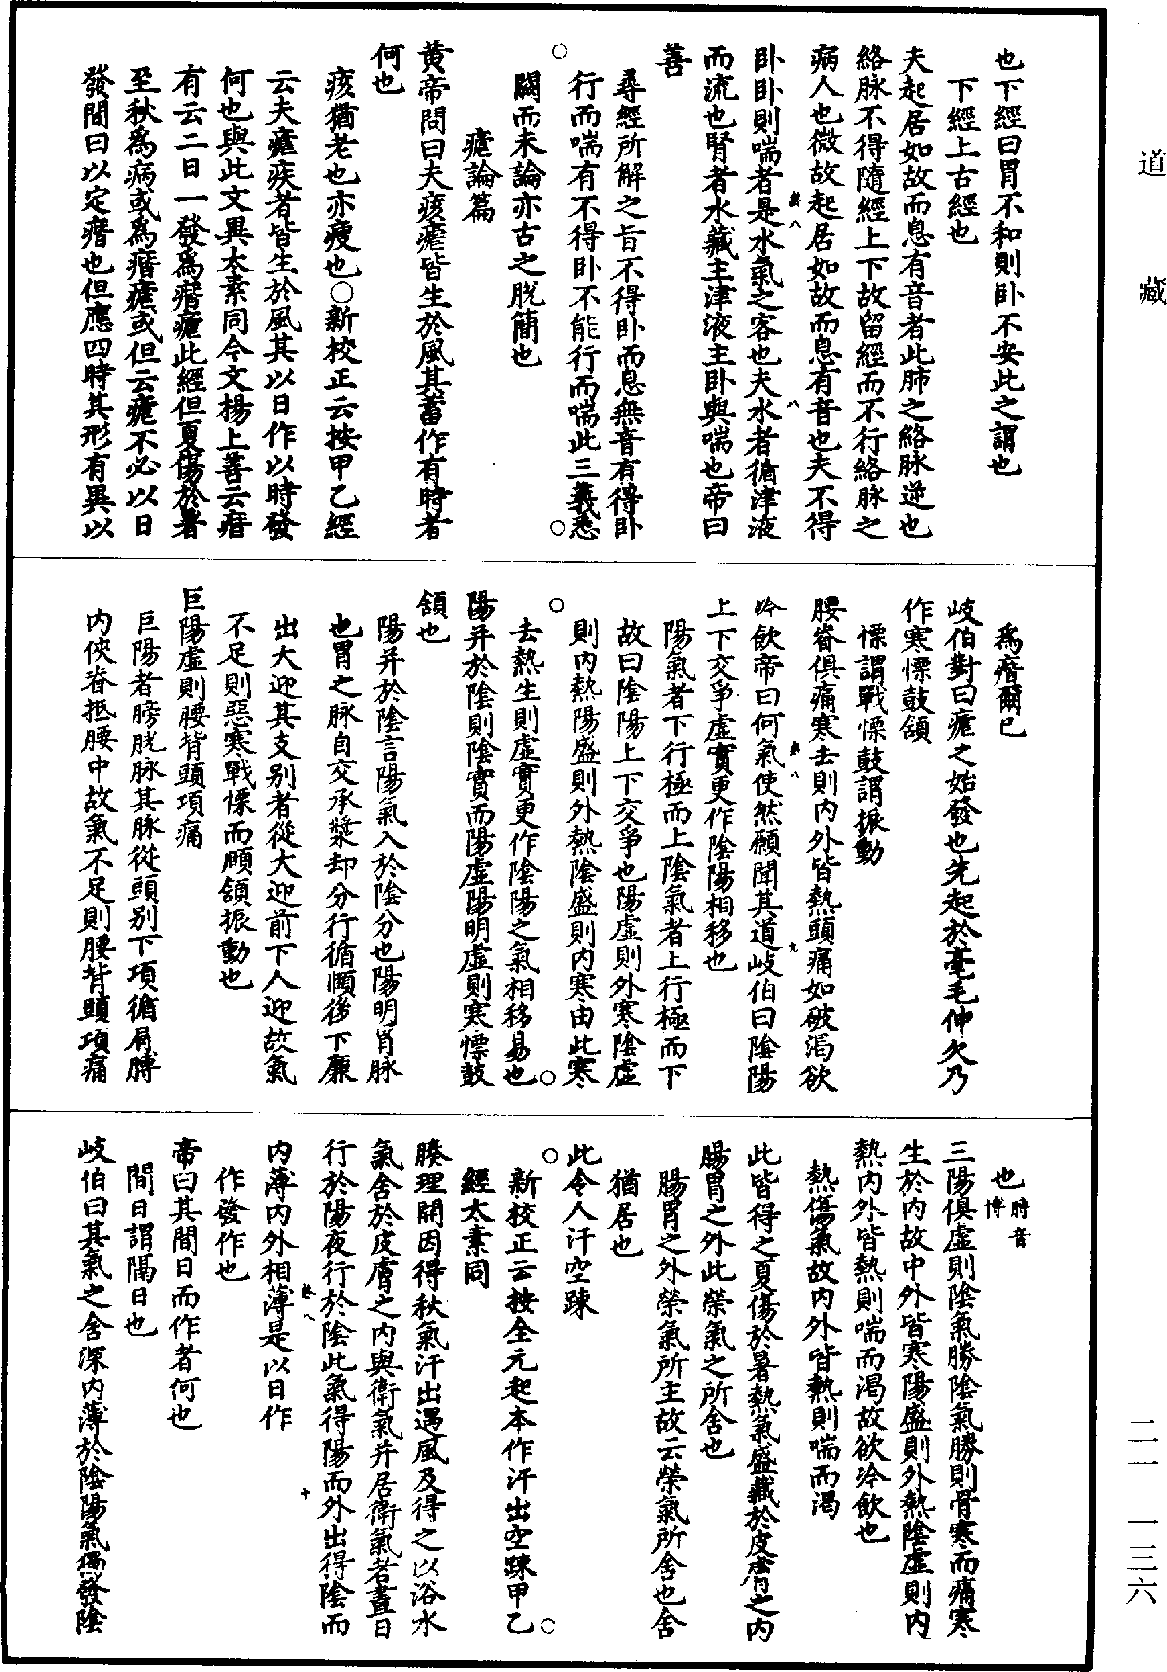 道藏
二一—一三六
也下經曰胃不和則卧不安此之謂也
下經上古經也
夫起居如故而息有音者此肺之絡脉逆也
絡脉不得隨經上下故留經而不行絡脉之
病人也微故起居如故而息有音也夫不得
卧卧則喘者是水氣之客也夫水者循津液
而流也腎者水藏主津液主卧與喘也帝曰
善
尋經所解之旨不得卧而息無音有得卧
行而喘有不得卧不能行而喘此三義悉
闕而未論亦古之脱簡也
瘧論篇
黄帝問曰夫痎瘧皆生於風其蓄作有時者
何也
痎猶老也亦瘦也○新校正云按甲乙經
云夫瘧疾者皆生於風其以日作以時發
何也與此文異太素同今文楊上善云㾬
有云二日一發爲㾬瘧此經但夏傷於暑
至秋爲病或爲㾬瘧或但云瘧不必以日
發間日以定㾬也但應四時其形有異以
爲㾬爾已
岐伯對曰瘧之始發也先起於毫毛伸欠乃
作寒慄鼓頷
慄謂戰慄鼓謂振動
腰脊俱痛寒去則内外皆熱頭痛如破渴欲
冷飲帝曰何氣使然願聞其道岐伯曰陰陽
上下交爭虛實更作陰陽相移也
陽氣者下行極而上陰氣者上行極而下
故曰陰陽上下交爭也陽虛則外寒陰虛
則内熱陽盛則外熱陰盛則内寒由此寒
去熱生則虛實更作陰陽之氣相移易也
陽并於陰則陰實而陽虛陽明虛則寒慄鼓
頷也
陽并於陰言陽氣入於陰分也陽明胃脉
也胃之脉自交承漿却分行循頤後下廉
出大迎其支别者從大迎前下人迎故氣
不足則惡寒戰慄而頤頷振動也
巨陽虛則腰背頭項痛
巨陽者膀胱脉其脉從頭别下項循肩膊
内俠脊抵腰中故氣不足則腰背頭項痛
也膊音博
三陽俱虛則陰氣勝陰氣勝則骨寒而痛寒
生於内故中外皆寒陽盛則外熱陰虛則内
熱内外皆熱則喘而渴故欲冷飲也
熱傷氣故内外皆熱則喘而渴
此皆得之夏傷於暑熱氣盛藏於皮膚之内
腸胃之外此榮氣之所舍也
腸胃之外榮氣所主故云榮氣所舍也舍
猶居也
此令人汗空踈
新校正云按全元起本作汗出空踈甲乙
經太素同
腠理開因得秋氣汗出遇風及得之以浴水
氣舍於皮膚之内與衛氣并居衛氣者晝日
行於陽夜行於陰此氣得陽而外出得陰而
内薄内外相薄是以日作
作發作也
帝曰其間日而作者何也
間日謂隔日也
岐伯曰其氣之舍深内薄於陰陽氣獨發陰